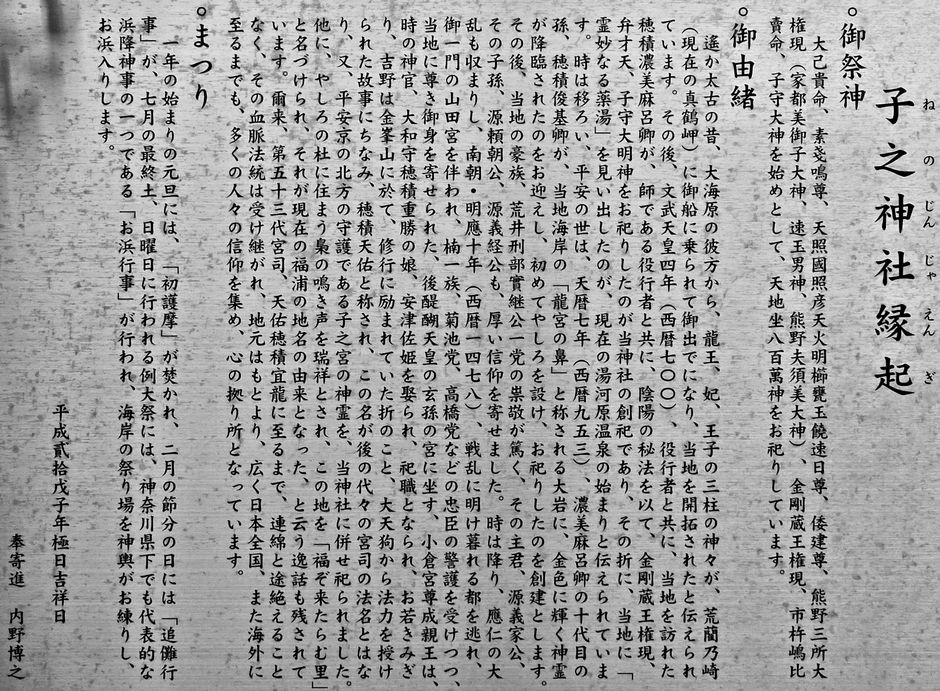 子之神社縁起
ねのじんじゃえんぎ
○御祭神
大己貴命、素戔鳴尊、天照國照彦天火明櫛甕玉饒速日尊、倭建尊、熊野三所大
権現（家都美御子大神、速玉男神、熊野夫須美大神）、金剛蔵王権現、市杵嶋比
賣命、子守大神を始めとして、天地坐八百萬神をお祀りしています。
○御由緒
遙か太古の昔、大海原の彼方から、龍王、妃、王子の三柱の神々が、荒藺乃崎
（現在の真鶴岬）に御船に乗られて御出でになり、当地を開拓されたと伝えられ
ています。その後、文武天皇四年（西暦七〇〇）、役行者と共に、当地を訪れた
穂積濃美麻呂卿が、師である役行者と共に、陰陽の秘法を以て、金剛蔵王権現、
弁才天、子守大明神をお祀りしたのが当神社の創祀であり、その折に、当地に「
霊妙なる薬湯」を見い出したのが、現在の湯河原温泉の始まりと伝えられていま
す。時は移ろい、平安の世は、天暦七年（西暦九五三）、濃美麻呂卿の十代目の
孫、穂積俊基卿が、当地海岸の「龍宮の鼻」と称される大岩に、金色に輝く神霊
が降臨されたのをお迎えし、初めてやしろを設け、お祀りしたのを創建とします。
その後、当地の豪族、荒井刑部實継公一党の崇敬が篤く、その主君、源義家公、
その子孫、源頼朝公、源義経公も、厚い信仰を寄せました。時は降り、應仁の大
乱も収まりし、南朝・明應十年（西暦一四七八）、戦乱に明け暮れる都を逃れ、
御一門の山田宮を伴われ、楠一族、菊池党、高橋党などの忠臣の警護を受けつつ、
当地に尊き御身を寄せられた、後醍醐天皇の玄孫の宮に坐す、小倉宮尊成親王は、
時の神官、大和守穂積重勝の娘、安津佐姫を娶られ、祀職となられ、お若きみぎ
り、吉野は金峯山に於て、修行に励まれていた折のこと、大天狗から法力を授け
られた故事にちなみ、穂積天佑と称され、この名が後の代々の宮司の法名とはな
り、又、平安京の北方の守護である子之宮の神霊を、当神社に併せ祀られました。
他に、やしろの杜に住まう梟の鳴き声を瑞祥とされ、この地を「福ぞ来たらむ里」
と名づけられ、それが現在の福浦の地名の由来となった、と云う逸話も残されて
います。爾来、第五十三代宮司、天佑穂積宜龍に至るまで、連綿と途絶えること
なく、その血脈法統は受け継がれ、地元はもとより、広く日本全国、また海外に
至るまでも、多くの人々の信仰を集め、心の拠り所となっています。
○まつり
一年の始まりの元旦には、「初護摩」が焚かれ、二月の節分の日には「追儺行
事」が、七月の最終土、日曜日に行われる例大祭には、神奈川県下でも代表的な
浜降神事の一つである「お浜行事」が行われ、海岸の祭り場を神輿がお練りし、
お浜入りします。
平成貳拾戊子年極日吉祥日
奉寄進　内野博之